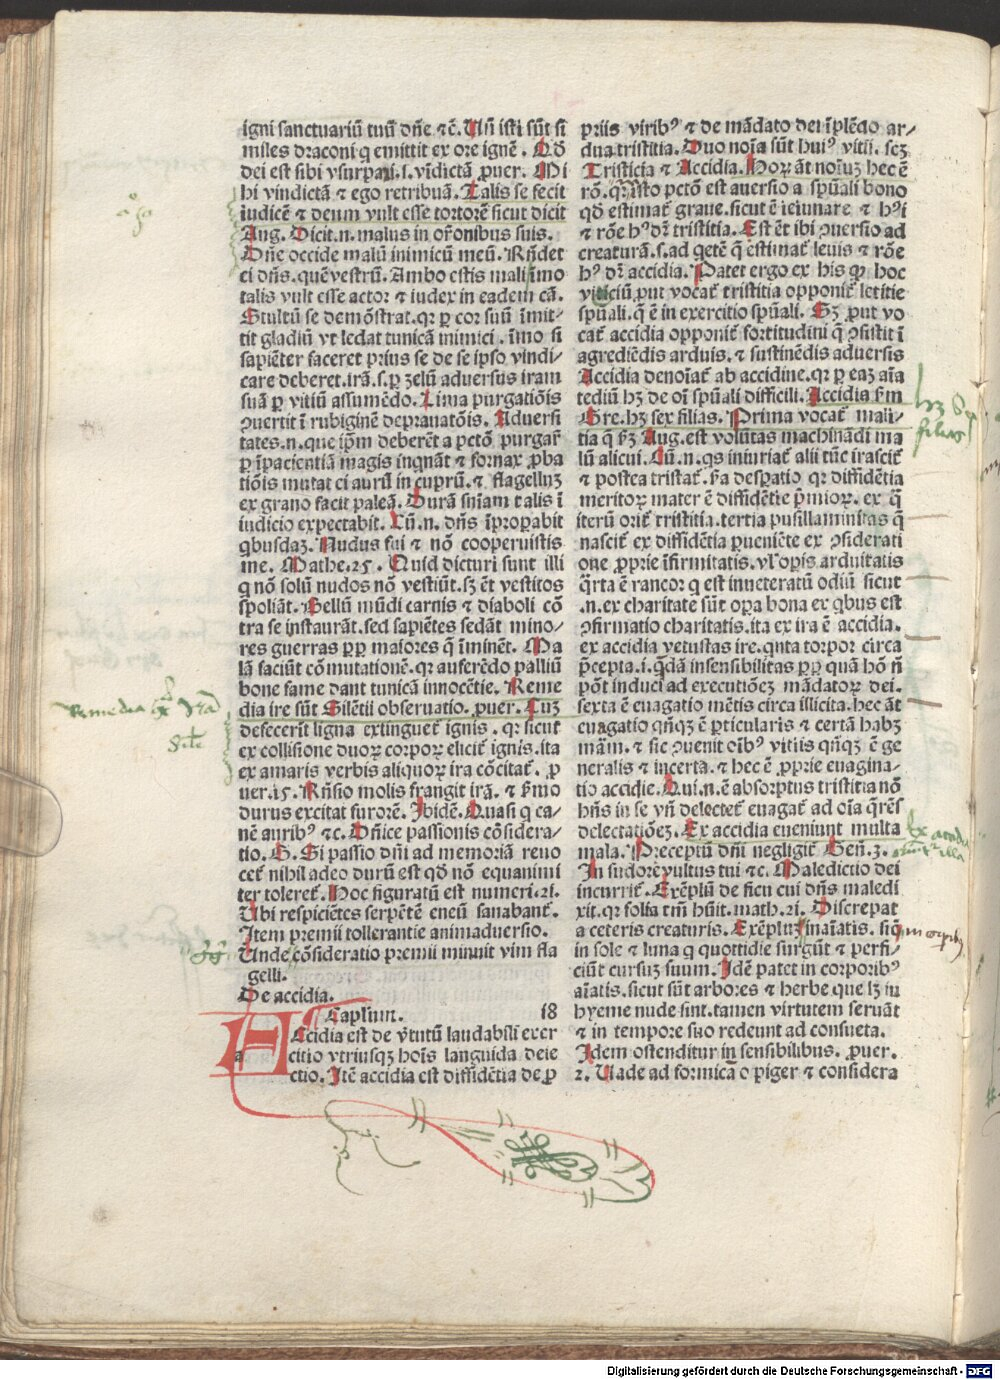 igni sanctuariū tuū dn̄e ⁊c̄. Uisi isti sūt si
miles draconi q emittit ex ore ignē. Qḋ
dei est sibi vsurpari.s.vīdictā ꝓuer. Mi
hi vindictā ⁊ ego retribuā. Talis se fecit
iudicē ⁊ deum vult esse tortorē sicut dicit
Aug. Dicit.n. malus in or̄onibus suis.
Dn̄e occide malū inimicū meū. Rn̄det
ei dn̄s. quē vestrū. Ambo estis mali imo
talis vult esse actor ⁊ iudex in eadem cā.
Stultū se demōstrat.qꝛ ꝑ cor suū īmit-
tit gladiū vt ledat tunicā inimici. īmo si
sapiēter faceret prius se de se ipso vindi-
care deberet.irā.s.ꝑ zelū aduersus iram
suā ꝑ vitiū assumēdo. Lima purgatiōis
ꝯuertit ī rubiginē deprauatōis. Aduersi
tates.n.que ip̄m deberēt a pctō purgar̄
ꝑ īpacientiā magis inqnāt ⁊ fornax ꝓba
tiōis mutat ei aurū in cuprū. ⁊ flagellum
ex grano facit paleā. Durā sniam talis ī
iudicio expectabit. Cū.n. dn̄s īproꝑabit
qbusdaꝫ. Nudus fui ⁊ nō cooperuistis
me. Mathe.25. Quid dicturi sunt illi
q nō solū nudos nō vestiūt.sꝫ ēt vestitos
spoliāt. Bellū mūdi carnis ⁊ diaboli cō
tra se instaurāt.sed sapiētes sedāt mino-
res guerras ꝓp maiores q īminēt. Ma
lā faciūt cōmutationē.qꝛ auferēdo palliū
bone fame dant tunicā innocētie. Reme
dia ire sūt Silētii obseruatio. ꝓuer. Cuꝫ
defecerīt ligna extinguet̄ ignis. qꝛ sicut
ex collisione duoꝝ corpoꝝ elicit̄ ignis.ita
ex amaris verbis aliquoꝝ ira cōcitat̄. ꝓ
uer.15. Rn̄sio molis frangit irā. ⁊ ẜmo
durus excitat furorē. Ibidē. Quasi q ca-
nē aurib⁹ ⁊c. Dn̄ice passionis cōsidera-
tio. G. Si passio dn̄i ad memoriā reuo
cet̄ nihil adeo durū est qḋ nō equanimi
ter toleret̄. Hoc figuratū est numeri.21.
Ubi respiciētes serpētē eneū sanabant̄.
Item premii tollerantie animaduersio.
Unde cōsideratio premii minuit vim fla
gelli.
De accidia.
Capl̄um. 18
Accidia est de v̄tutū laudabili exer
citio vtriusqꝫ hoīs languida deie
ctio. Itē accidia est diffidētia de ꝓ
priis virib⁹ ⁊ de mādato dei īplēdo ar-
dua tristitia. Duo noīa sūt hui⁹ vitii. scꝫ
Tristicia ⁊ Accidia. Hoꝝ āt noīuꝫ hec ē
rō. q̄ a īsto pctō est auersio a sp̄uali bono
qḋ estimat̄ graue.sicut ē ieiunare ⁊ h⁹i
⁊ rōe h⁹ dr̄ tristitia. Est ēt ibi ꝯuersio ad
creaturā.s.ad q̄etē q̄ estimat̄ leuis ⁊ rōe
h⁹ dr̄ accidia. Patet ergo ex his ꝙ hoc
viticiū ꝓut vocat̄ tristitia opponit̄ letitie
sp̄uali.q̄ ē in exercitio sp̄uali. Sꝫ ꝓut vo
cat̄ accidia opponit̄ fortitudini q̄ ꝯsistit ī
agrediēdis arduis.⁊ sustinēdis aduersis
Accidia denoīat̄ ab accidine.qꝛ ꝑ eaꝫ aīa
tediū hꝫ de oī sp̄uali difficili. Accidia ẜm
Gre.hꝫ sex filias. Prima vocat̄ mali-
tia q̄ ẜꝫ Aug.est volūtas machināndi ma
lū alicui. Cū.n.qs iniuriat̄ alii tūc irascit̄
⁊ postea tristat̄. ẜa desꝑatio qꝛ diffidētia
meritoꝝ mater ē diffidētie p̄mioꝝ. ex q̄
iterū orit̄ tristitia.tertia pusillaminitas q̄
nascit̄ ex diffidētia ꝓueniēte ex ꝯsiderati
one ꝓprie īfirmitatis.vl' oꝑis arduitatis
q̄rta ē rancor q̄ est inueteratū odiū sicut
.n.ex charitate sūt oꝑa bona ex qbus est
ꝯfirmatio charitatis.ita ex ira ē accidia.
ex accidia vetustas ire.qnta torpor circa
p̄cepta.i.qdā insensibilitas ꝓp quā hō n̄
pōt induci ad executiōeꝫ mādatoꝝ dei.
sexta ē euagatio mētis circa illicita.hec āt
euagatio qn̄qꝫ ē ꝑticularis ⁊ certā habꝫ
mām. ⁊ sic ꝯuenit oīb⁹ vitiis qn̄qꝫ ē ge
neralis ⁊ incerta.⁊ hec ē ꝓprie euagina-
tio accidie. Qui.n.ē absorptus tristitia nō
hn̄s in se vn̄ delectet̄ euagat̄ ad oīa q̄rēs
delectatiōeꝫ. Ex accidia eueniunt multa
mala. Preceptū dn̄i negligit̄ Gen̄.3.
In sudore vultus tui ⁊c. Maledictio dei
incurrit̄. Exēplū de ficu cui dn̄s maledi
xit.qꝛ folia tm̄ hūit.math.21. Discrepat
a ceteris creaturis. Exēpluꝫ inaīatis. sic̄
in sole ⁊ luna q quottidie surgūt ⁊ perfi-
ciūt cursuꝫ suum. Idē patet in corporib⁹
aīatis.sicut sūt arbores ⁊ herbe que lꝫ in
hyeme nude sint.tamen virtutem seruāt
⁊ in tempore suo redeunt ad consueta.
Idem ostenditur in sensibilibus. ꝓuer.
2. Uade ad formicā o piger ⁊ considera
Remedia
filias
Digitalisierung gefördert durch die Deutsche Forschungsgemeinschaft - DFG